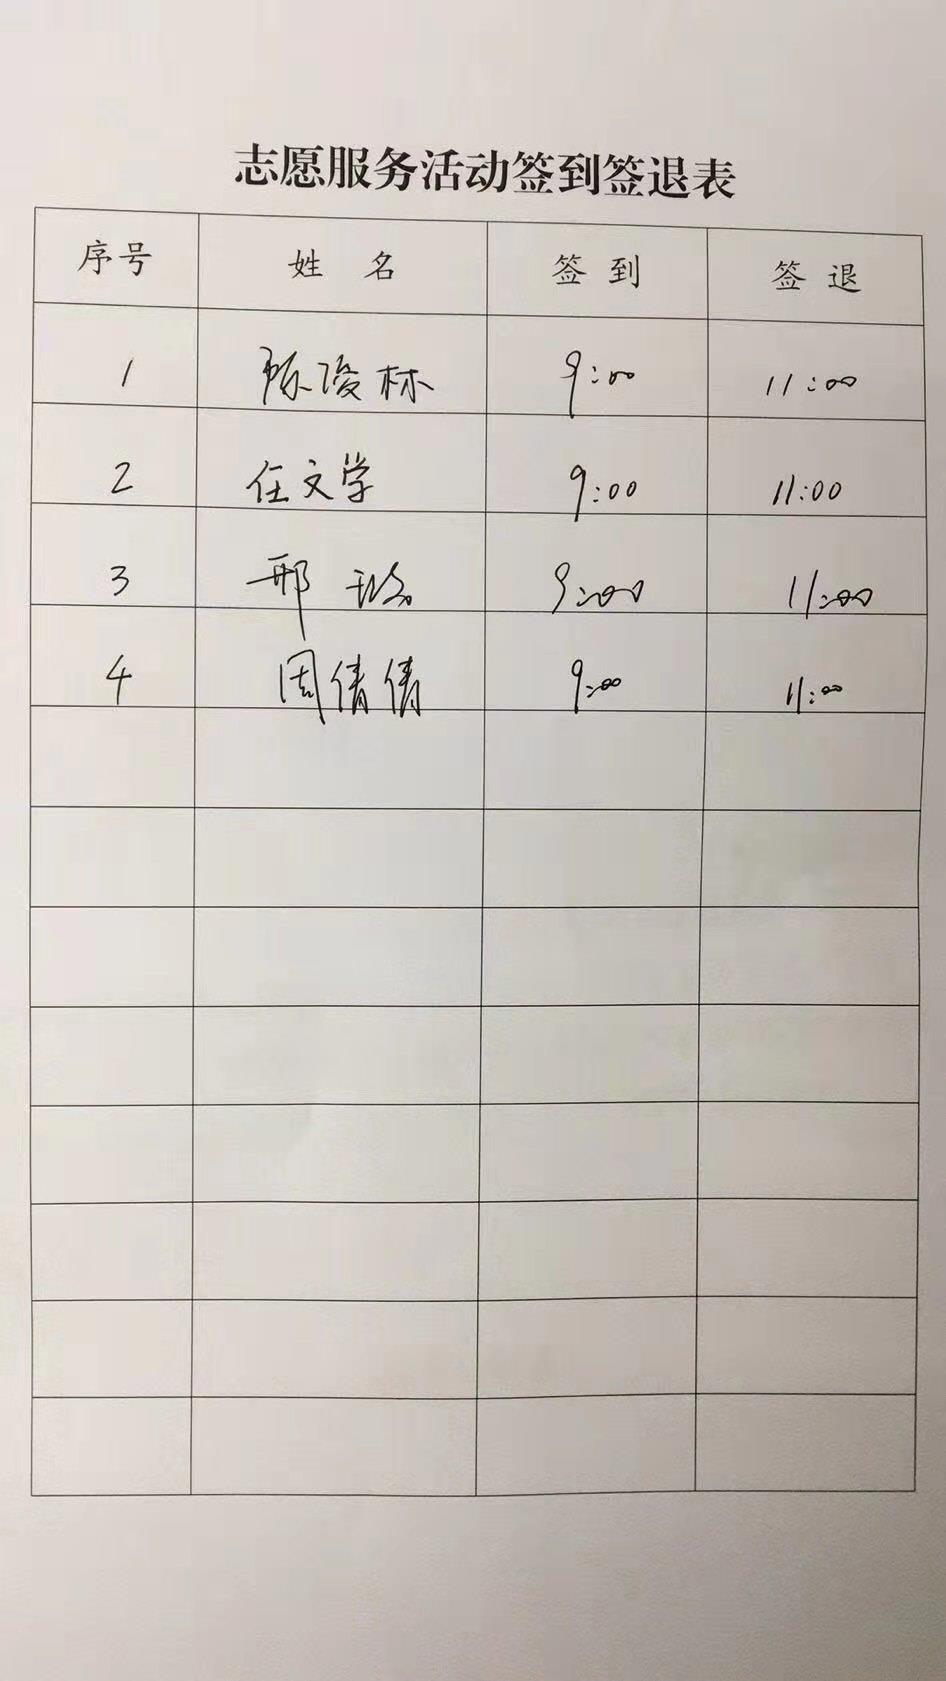 志愿服务活动签到签退表
序号 姓 名 签 到 签 退
1 陈俊林 9:00 11:00
2 任文学 9:00 11:00
3 邢 9:00 11:00
4 周倩倩 9:00 11:00